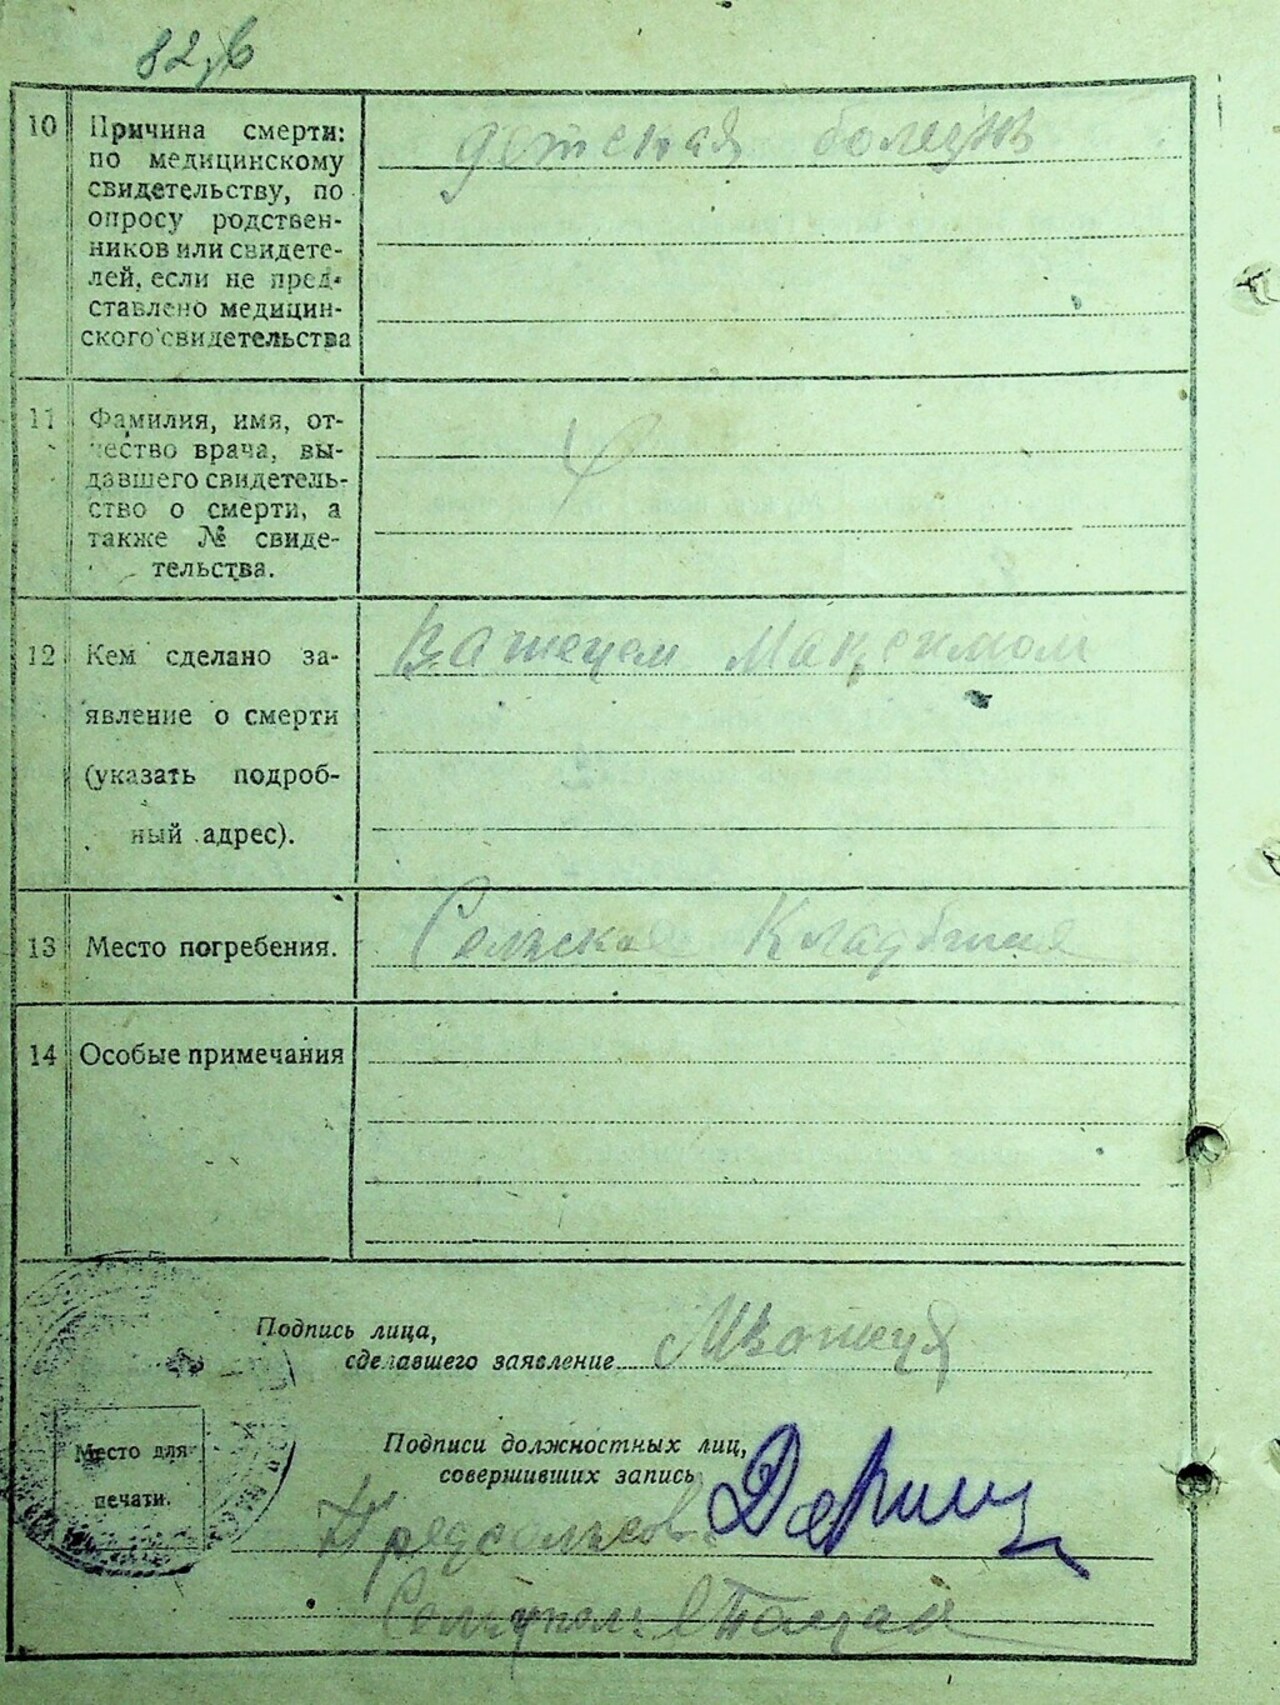 10 Причина смерти:
по медицинскому
свидетельству, по
опросу родствен-
ников или свидете-
лей, если не пред-
ставлено медицин-
ского свидетельства
детская болезнь
11 Фамилия, имя, от-
чество врача, вы-
давшего свидетель-
ство о смерти, а
также № свиде-
тельства.
12 Кем сделано за-
явление о смерти
(указать подроб-
ный адрес).
Ватецем Максимом
13 Место погребения.
Сельское Кладбище
14 Особые примечания
Подпись лица,
сделавшего заявление
Подписи должностных лиц,
совершивших запись
Место для
печати.
Предсельсов.